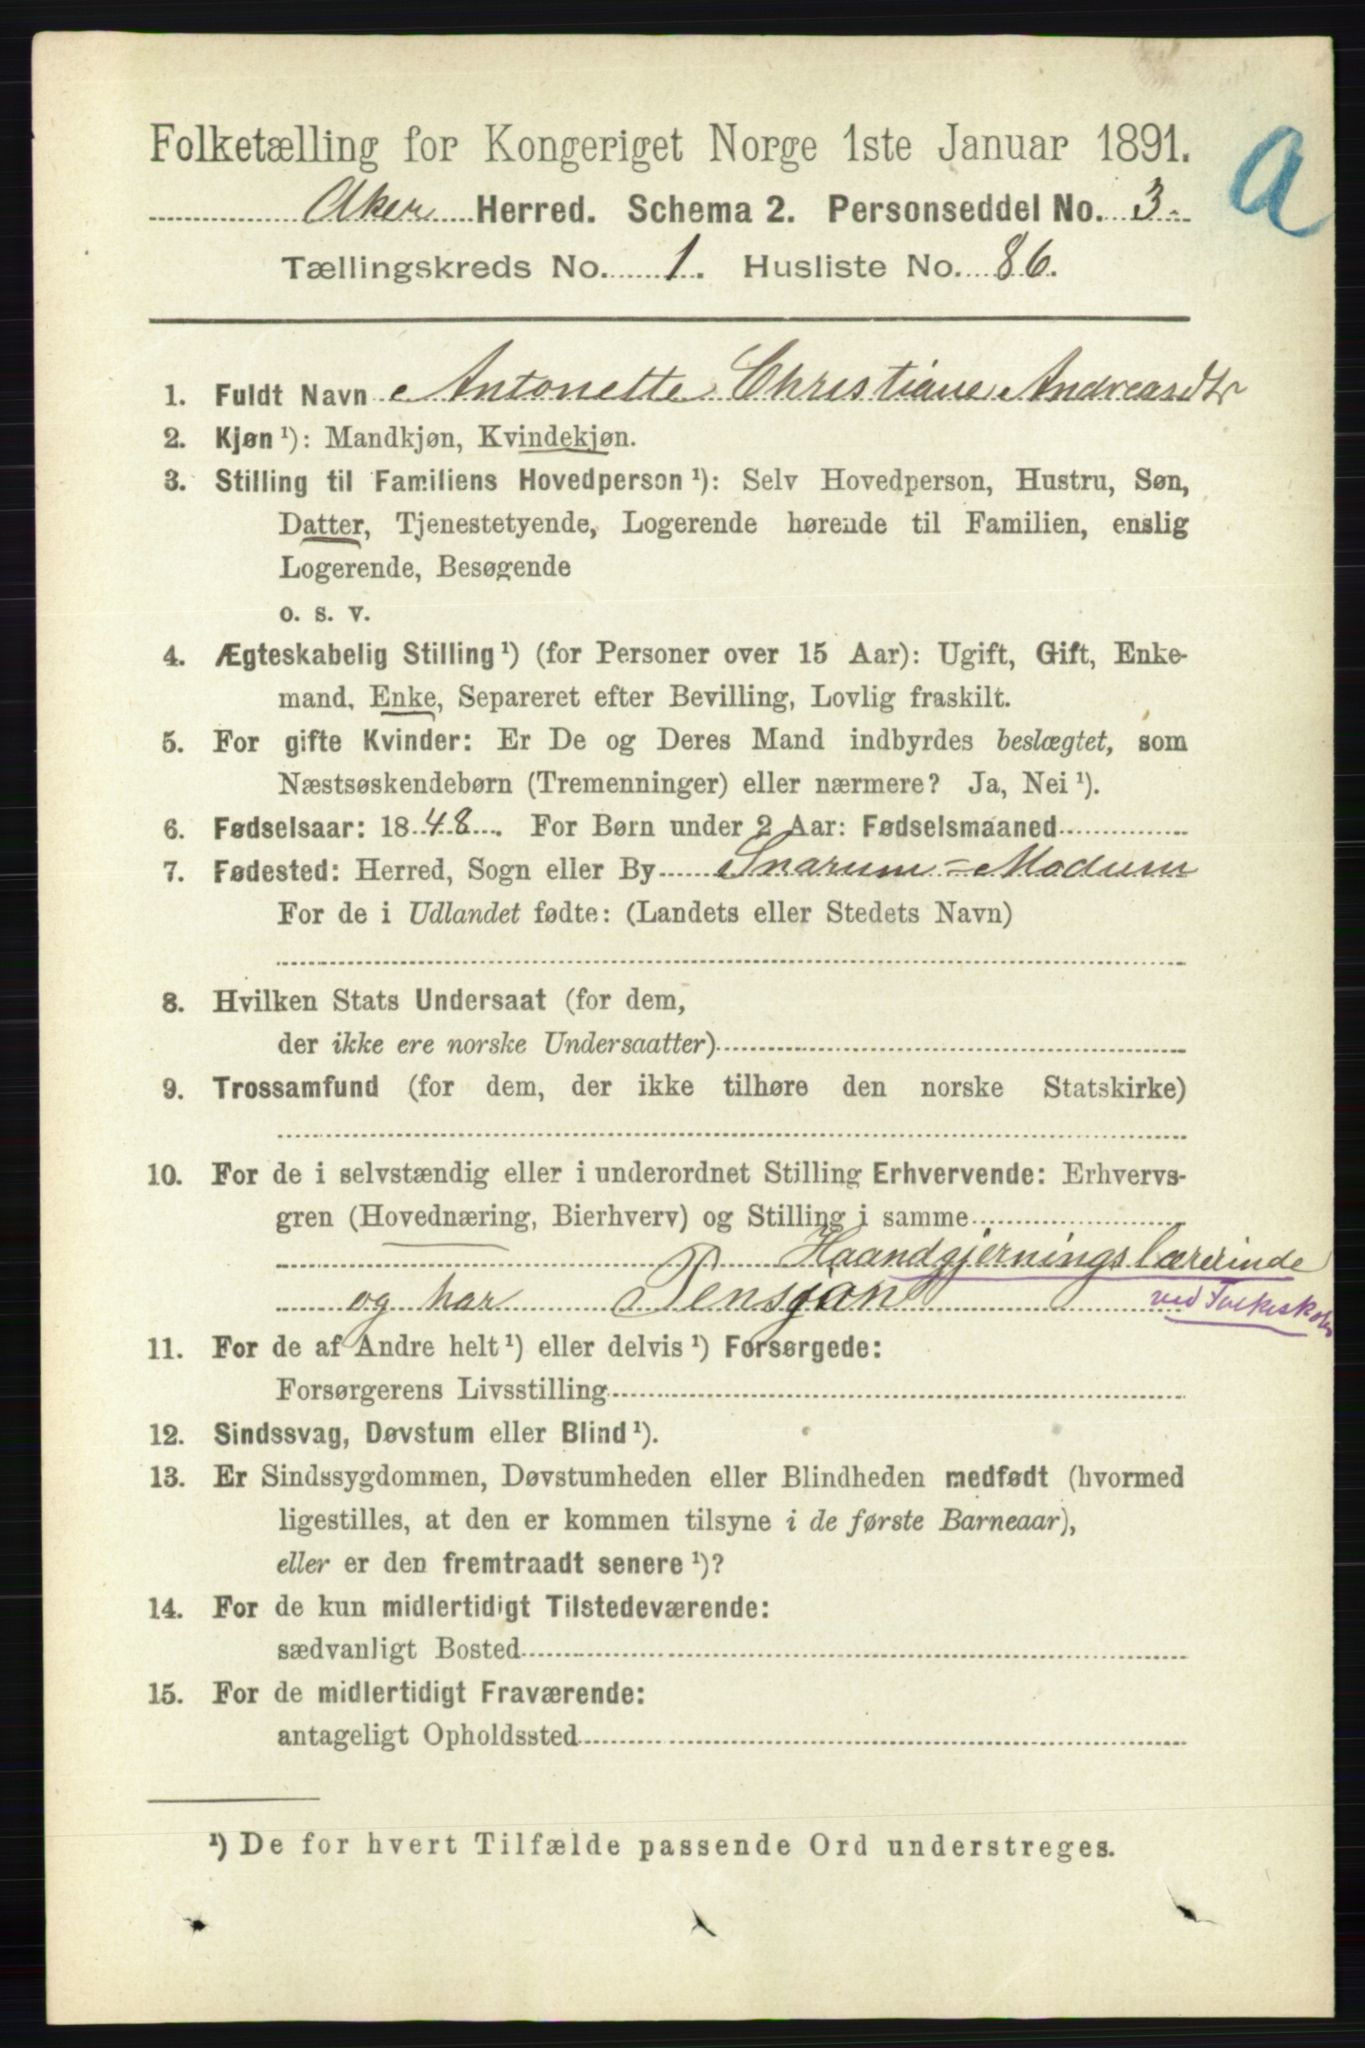 Folketælling for Kongeriget Norge 1ste Januar 1891.
a
Aker Herred. Schema 2. Personseddel No. 3.
Tællingskreds No. 1. Husliste No. 86.
1. Fuldt Navn Antonette Christiane Andreasdtr
2. Kjøn ¹): Mandkjøn, Kvindekjøn.
3. Stilling til Familiens Hovedperson ¹): Selv Hovedperson, Hustru, Søn,
Datter, Tjenestetyende, Logerende hørende til Familien, enslig
Logerende, Besøgende
o. s. v.
4. Ægteskabelig Stilling ¹) (for Personer over 15 Aar): Ugift, Gift, Enke-
mand, Enke, Separeret efter Bevilling, Lovlig fraskilt.
5. For gifte Kvinder: Er De og Deres Mand indbyrdes beslægtet, som
Næstsøskendebørn (Tremenninger) eller nærmere? Ja, Nei ¹).
6. Fødselsaar: 1848. For Børn under 2 Aar: Fødselsmaaned
7. Fødested: Herred, Sogn eller By Snarum = Modum
For de i Udlandet fødte: (Landets eller Stedets Navn)
8. Hvilken Stats Undersaat (for dem,
der ikke ere norske Undersaatter)
9. Trossamfund (for dem, der ikke tilhøre den norske Statskirke)
10. For de i selvstændig eller i underordnet Stilling Erhvervende: Erhvervs-
gren (Hovednæring, Bierhverv) og Stilling i samme
Haandgjerningslærerinde
og har Pensjon ved Folkeskolen
11. For de af Andre helt ¹) eller delvis ¹) Forsørgede:
Forsørgerens Livsstilling
12. Sindssvag, Døvstum eller Blind ¹).
13. Er Sindssygdommen, Døvstumheden eller Blindheden medfødt (hvormed
ligestilles, at den er kommen tilsyne i de første Barneaar),
eller er den fremtraadt senere ¹)?
14. For de kun midlertidigt Tilstedeværende:
sædvanligt Bosted
15. For de midlertidigt Fraværende:
antageligt Opholdssted
¹) De for hvert Tilfælde passende Ord understreges.